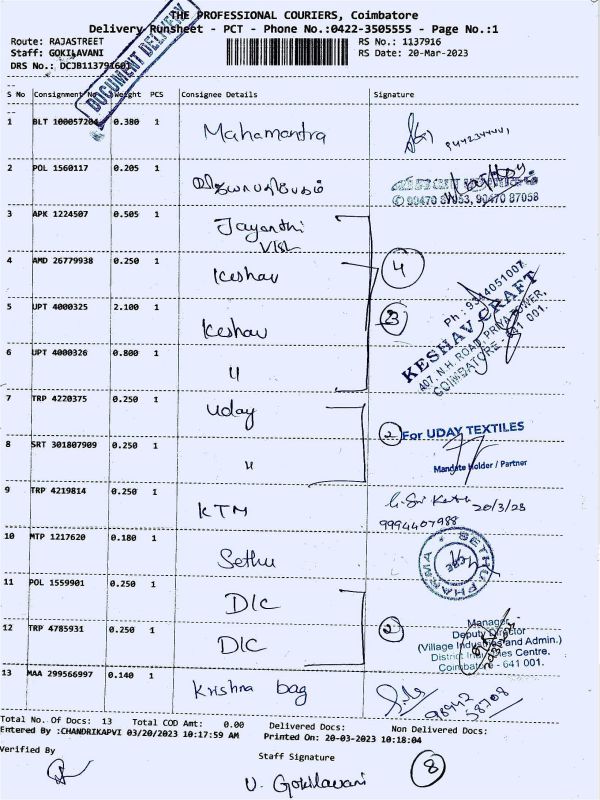 THE PROFESSIONAL COURIERS, Coimbatore
Delivery Runsheet - PCT - Phone No.:0422-3505555 - Page No.:1
Route: RAJASTREET
Staff: GOKILAVANI
DRS No.: DCJB113791601
RS No.: 1137916
RS Date: 20-Mar-2023
DOCUMENT DELIVERY
S No Consignment No Weight PCS Consignee Details Signature
1 BLT 100057204 0.380 1 Mahamantra
2 POL 1560117 0.205 1
90470 87053, 90470 87058
3 APK 1224507 0.505 1 Jayanthi
4 AMD 26779938 0.250 1 Keshav 4
5 UPT 4000325 2.100 1 Keshav
6 UPT 4000326 0.800 1 "
Ph : 9344051007
KESHAV CRAFT
407, N.H. ROAD, PRIYA TOWER,
COIMBATORE - 641 001.
7 TRP 4220375 0.250 1 Uday 2 For UDAY TEXTILES
8 SRT 301807909 0.250 1 "
Mandate Holder / Partner
9 TRP 4219814 0.250 1 KTM 20/3/23
9994407988
10 MTP 1217620 0.180 1 Sethu
SETHU PHARMA
CBE
11 POL 1559901 0.250 1 DIC
12 TRP 4785931 0.250 1 DIC 2
Manager
Deputy Director
(Village Industries and Admin.)
District Industries Centre,
Coimbatore - 641 001.
13 MAA 299566997 0.140 1 Krishna bag
98942
58708
Total No. Of Docs: 13 Total COD Amt: 0.00 Delivered Docs: Non Delivered Docs:
Entered By :CHANDRIKAPVI 03/20/2023 10:17:59 AM Printed On: 20-03-2023 10:18:04
Verified By Staff Signature 8
V. Gokilavani